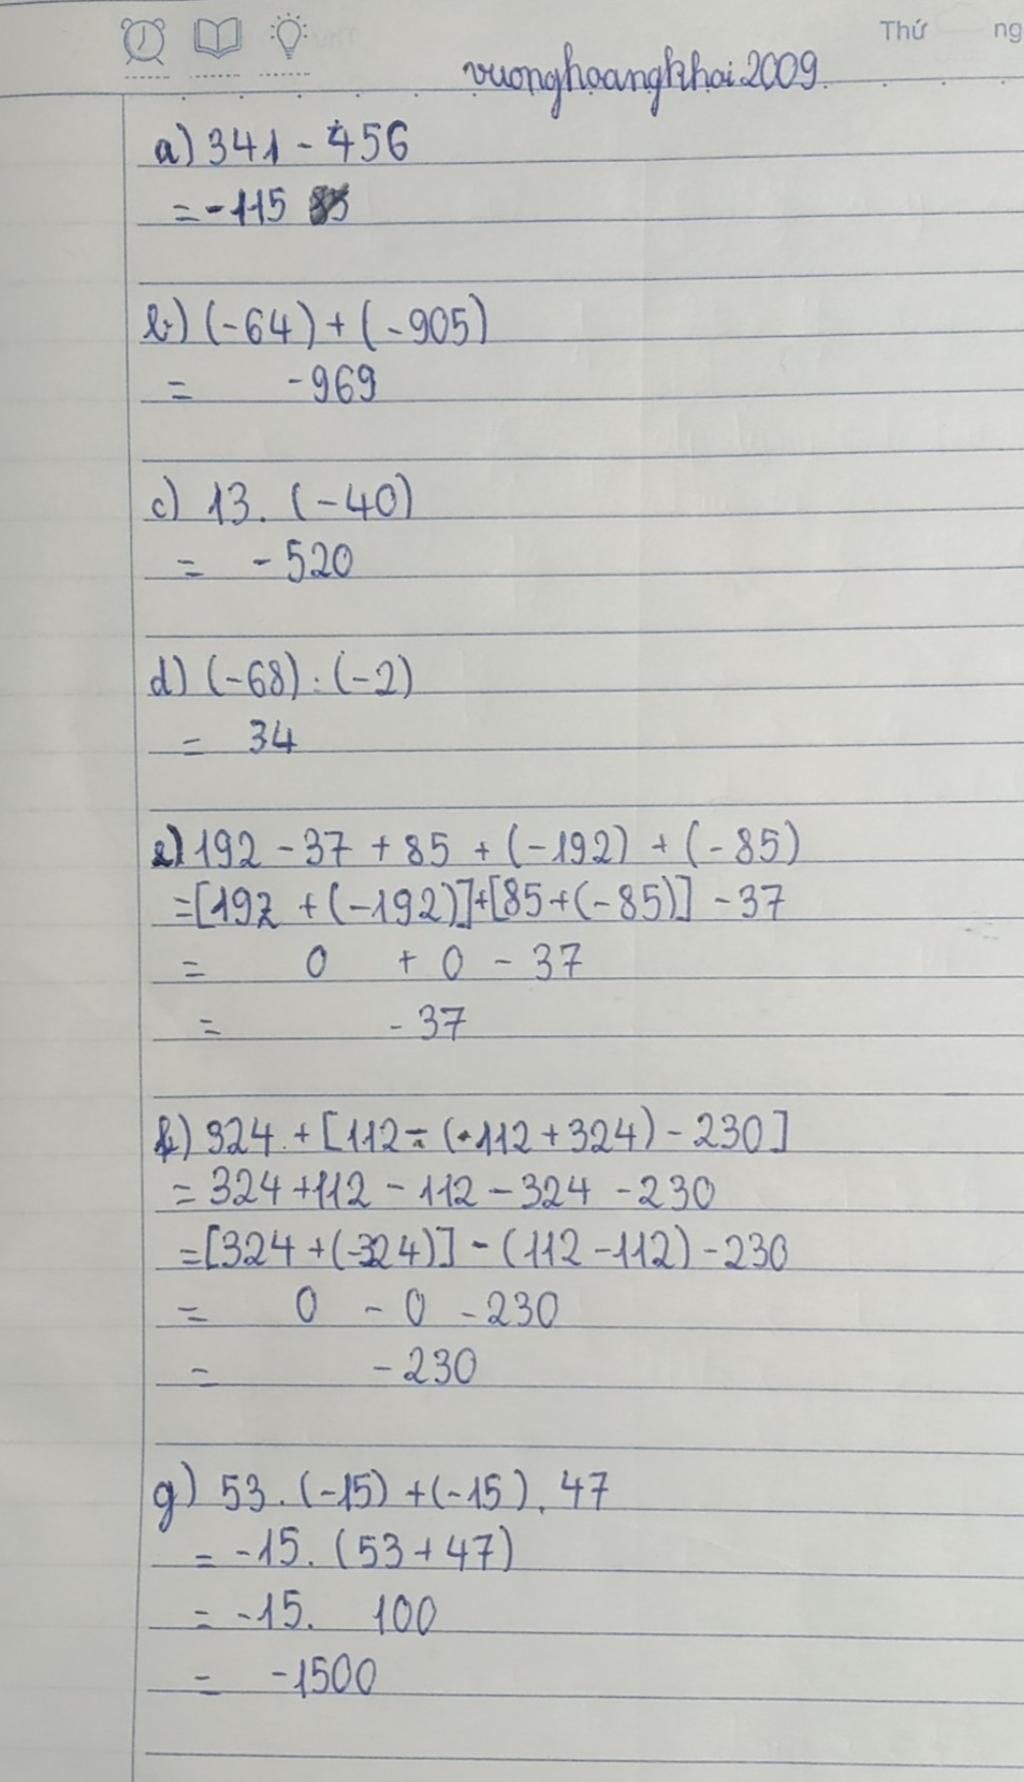 Thứ ng
vuonghoangkhai2009
a) 341 - 456
= -115
b) (-64) + (-905)
= -969
c) 13. (-40)
= -520
d) (-68) : (-2)
= 34
e) 192 - 37 + 85 + (-192) + (-85)
= [192 + (-192)] + [85 + (-85)] - 37
= 0 + 0 - 37
= -37
f) 324 + [112 - (112 + 324) - 230]
= 324 + 112 - 112 - 324 - 230
= [324 + (-324)] - (112 - 112) - 230
= 0 - 0 - 230
= -230
g) 53. (-15) + (-15). 47
= -15. (53 + 47)
= -15. 100
= -1500